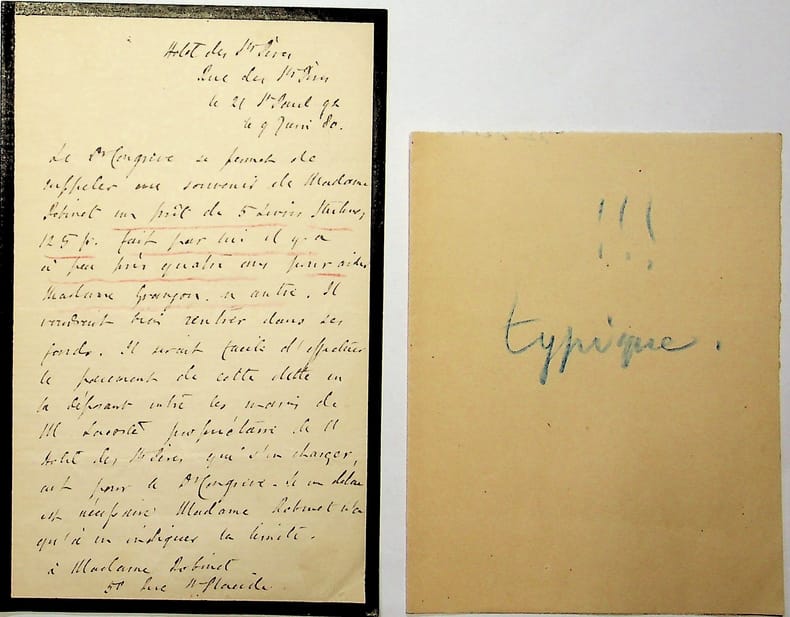 Hotel des Sts Pères
Rue des Sts Pères
le 21
le 9 Juin 80.
Le Dr Congrève se permet de
rappeler au souvenir de Madame
Robinet un prêt de 5 Livres Sterling,
125 fr. fait par lui il y a
à peu près quatre ans pour aider
Madame
voudrait bien rentrer dans ses
fonds. Il serait facile d'effectuer
le paiement de cette dette en
la déposant entre les mains de
M Lacoste propriétaire de l'
Hotel des Sts Pères qui s'en charger,
ait pour le Dr Congrève. Si un délai
est nécessaire Madame Robinet n'a
qu'à en indiquer la limite.
à Madame Robinet
50 Rue St Placide
!!!
typique.